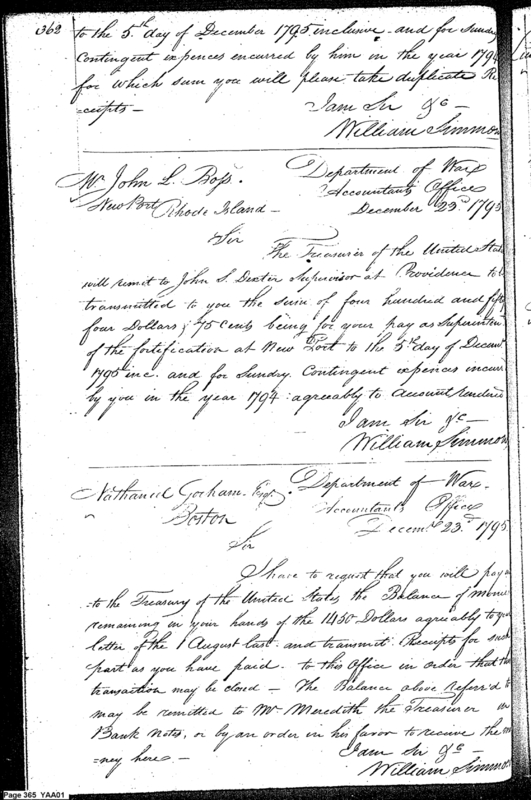 362
to the 5th day of December 1795 inclusive and for Sundry
Contingent expences encurred by him in the year 1794
for which sum you will please take duplicate Re
=ceipts—
I am Sir &c—
William Simmons
Mr John L. Boss.
New Port Rhode Island—
Department of War
Accountants Office
December 23d. 1795
Sir
The Treasurer of the United Stat
will remit to John S. Dexter Supervisor at Providence to be
transmitted to you the sum of four hundred and fifty
four Dollars, 75 Cents being for your pay as Superinten
of the fortification at New Port to the 5th day of Decemr
1795 inc. and for Sundry Contingent expences incurr
by you in the year 1794 agreeably to Account rendered
I am Sir &c
William Simmons
Nathaniel Gorham Esqr.
Boston
Department of War.
Accountants Office
Decemr. 23d. 1795
Sir
I have to request that you will pay
to the Treasury of the United States the Balance of mone
remaining in your hands of the 1450 Dollars agreeably to your
letter of the 1 August last and transmit Receipts for such
part as you have paid to this Office in order that the
transaction may be closed— The Balance above referr'd to
may be remitted to Mr Meredith the Treasurer in
Bank Notes, or by an order in his favor to receive the mo
=ney here—
I am Sir &c—
William Simmon
Page 365 YAA01